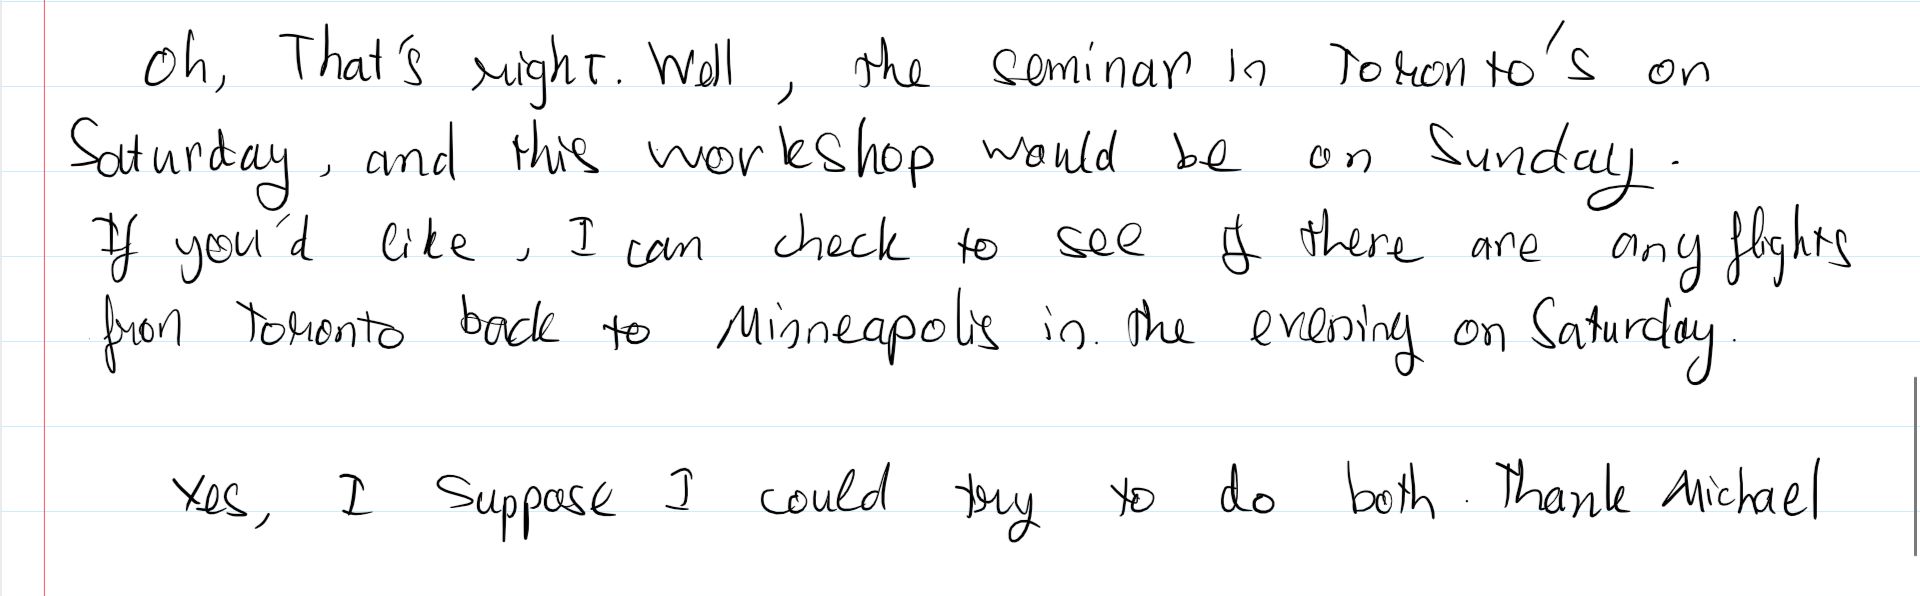 Oh, That's right. Well, the seminar in Toronto's on
Saturday, and this workshop would be on Sunday.
If you'd like, I can check to see if there are any flights
fron Toronto back to Minneapolis in. the evening on Saturday.
Yes, I suppose I could try to do both. Thank Michael